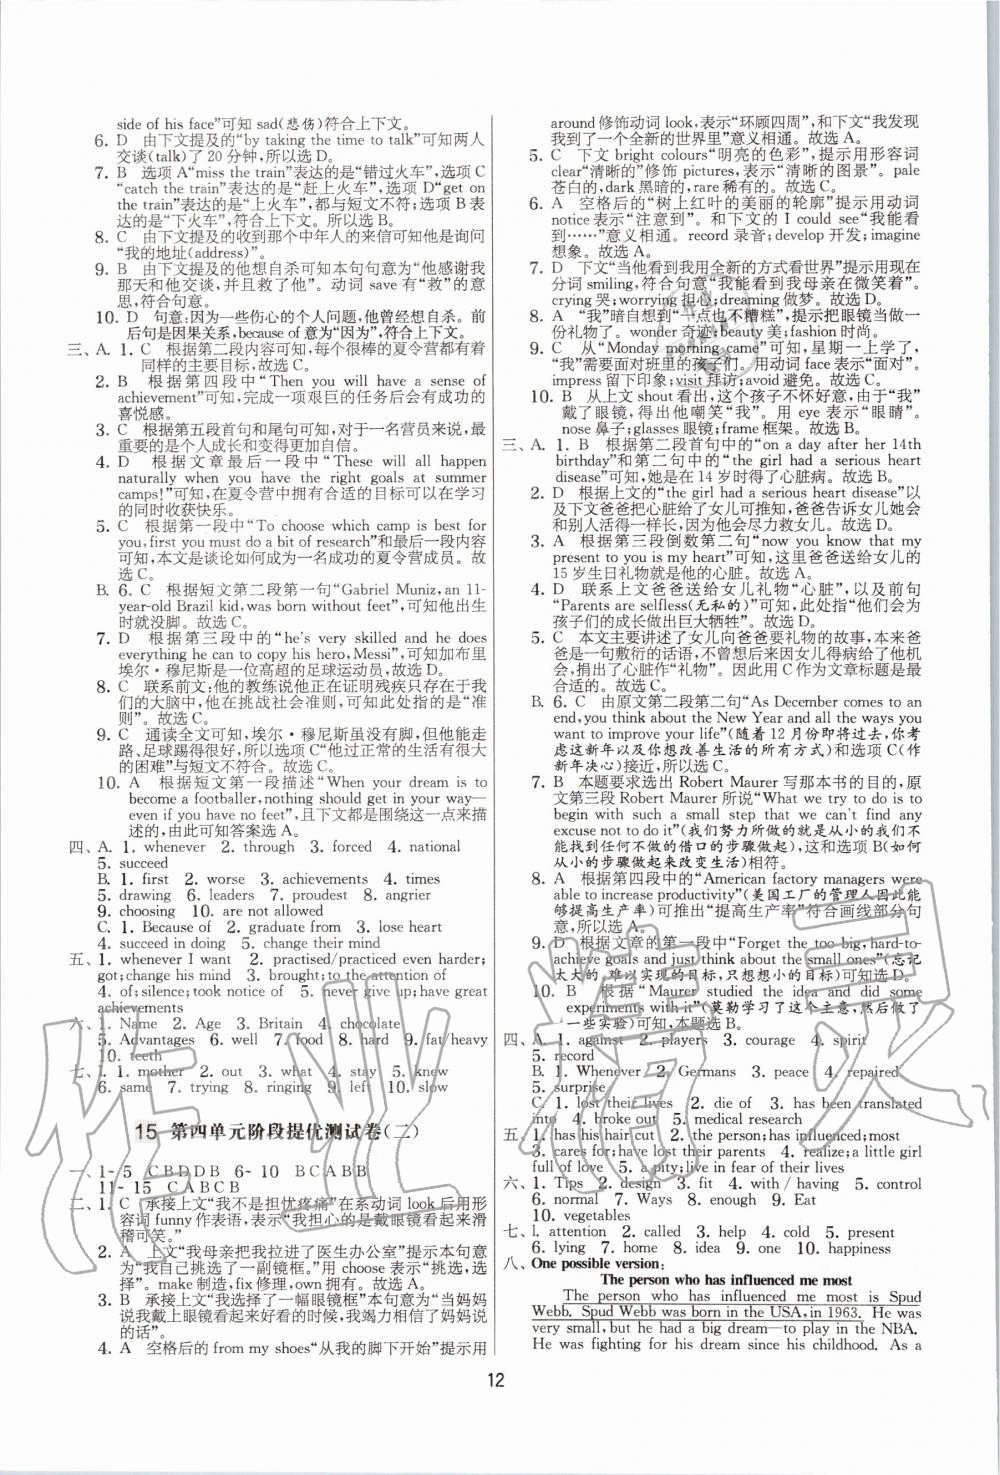 side of his face”可知 sad(悲伤)符合上下文。
6. D 由下文提及的“by taking the time to talk”可知两人
交谈(talk)了 20 分钟,所以选 D。
7. B 选项 A“miss the train”表达的是“错过火车”,选项 C
“catch the train”表达的是“赶上火车”,选项 D“get on
the train”表达的是“上火车”,都与短文不符;选项 B 表
达的是“下火车”,符合上下文。所以选 B。
8. C 由下文提及的收到那个中年人的来信可知他是询问
“我的地址(address)”。
9. B 由下文提及的他想自杀可知本句句意为“他感谢我
那天和他交谈,并且救了他”。动词 save 有“救”的意
思,符合句意。
10. D 句意:因为一些伤心的个人问题,他曾经想自杀。前
后句是因果关系,because of 意为“因为”,符合上下文。
三、A. 1. C 根据第二段内容可知,每个很棒的夏令营都有着
同样的主要目标,故选 C。
2. B 根据第四段中“Then you will have a sense of
achievement”可知,完成一项艰巨的任务后会有成功的
喜悦感。
3. C 根据第五段首句和尾句可知,对于一名营员来说,最
重要的是个人成长和变得更加自信。
4. D 根据文章最后一段中“These will all happen
naturally when you have the right goals at summer
camps!”可知,在夏令营中拥有合适的目标可以在学习
的同时收获快乐。
5. C 根据第一段中“To choose which camp is best for
you,first you must do a bit of research”和最后一段内容
可知,本文是谈论如何成为一名成功的夏令营成员。故
选 C。
B. 6. C 根据短文第二段第一句“Gabriel Muniz, an 11-
year-old Brazil kid,was born without feet”,可知他出生
时就没脚。故选 C。
7. D 根据第三段中的“he's very skilled and he does
everything he can to copy his hero,Messi”,可知加布里
埃尔·穆尼斯是一位高超的足球运动员,故选 D。
8. C 联系前文:他的教练说他正在证明残疾只存在于我
们的大脑中,他在挑战社会准则,可知此处指的是“准
则”。故选 C。
9. C 通读全文可知,埃尔·穆尼斯虽没有脚,但他能走
路、足球踢得很好,所以选项 C“他过正常的生活有很大
的困难”与短文不符合。故选 C。
10. A 根据短文第一段描述“When your dream is to
become a footballer,nothing should get in your way—
even if you have no feet”,且下文都是围绕这一点来描
述的,由此可知答案选 A。
四、A. 1. whenever 2. through 3. forced 4. national
5. succeed
B. 1. first 2. worse 3. achievements 4. times
5. drawing 6. leaders 7. proudest 8. angrier
9. choosing 10. are not allowed
C. 1. Because of 2. graduated from 3. lose heart
4. succeed in doing 5. change their mind
五、1. whenever I want 2. practised/practiced even harder;
got;change his mind 3. brought;to the attention of
4. of;silence;took notice of 5. never give up;have great
achievements
六、1. Name 2. Age 3. Britain 4. chocolate
5. Advantages 6. well 7. food 8. hard 9. fat/heavy
10. teeth
七、1. mother 2. out 3. what 4. stay 5. knew
6. same 7. trying 8. ringing 9. left 10. slow
15 第四单元阶段提优测试卷(二)
一、1-5 CBDDB 6-10 BCABB
11-15 CABCB
二、1. C 承接上文“我不是担忧疼痛”在系动词 look 后用形
容词 funny 作表语,表示“我担心的是戴眼镜看起来滑
稽可笑。”
2. A 上文“我母亲把我拉进了医生办公室”提示本句意
为“我自己挑选了一副镜框。”用 choose 表示“挑选,选
择”。make 制造,fix 修理,own 拥有。故选 A。
3. B 承接上文“我选择了一幅眼镜框”本句意为“当妈妈
说我戴上眼镜看起来好看的时候,我竭力相信了妈妈说
的话”。
4. A 空格后的 from my shoes“从我的脚下开始”提示用
around 修饰动词 look,表示“环顾四周”,和下文“我发现
我到了一个全新的世界里”意义相通。故选 A。
5. C 下文 bright colours“明亮的色彩”,提示用形容词
clear“清晰的”修饰 pictures,表示“清晰的图景”。pale
苍白的,dark 黑暗的,rare 稀有的。故选 C。
6. A 空格后的“树上红叶的美丽的轮廓”提示用动词
notice 表示“注意到”。和下文的 I could see“我能看
到……”意义相通。record 录音;develop 开发;imagine
想象。故选 A。
7. D 下文“当他看到我用全新的方式看世界”提示用现在
分词 smiling,符合句意“我能看到我母亲在微笑着”。
crying 哭;worrying 担心;dreaming 做梦。故选 D。
8. A “我”暗自想到“一点也不糟糕”,提示把眼镜当做一
份礼物了。wonder 奇迹;beauty 美;fashion 时尚。
9. C 从“Monday morning came”可知,星期一上学了,
“我”需要面对班里的孩子们。用动词 face 表示“面对”。
impress 留下印象;visit 拜访;avoid 避免。故选 C。
10. B 从上文 shout 看出,这个孩子不怀好意,由于“我”
戴了眼镜,得出他嘲笑“我”。用 eye 表示“眼睛”。
nose 鼻子;glasses 眼镜;frame 框架。故选 B。
三、A. 1. B 根据第二段首句中的“on a day after her 14th
birthday”和第二句中的“the girl had a serious heart
disease”可知,她是在 14 岁时得了心脏病。故选 B。
2. D 根据上文的“the girl had a serious heart disease”以
及下文爸爸把心脏给了女儿可推知,爸爸告诉女儿她会
和别人活得一样长,因为他会尽力救女儿。故选 D。
3. A 根据第三段倒数第二句“now you know that my
present to you is my heart”可知,这里爸爸送给女儿的
15 岁生日礼物就是他的心脏。故选 A。
4. D 联系上文爸爸送给女儿礼物“心脏”,以及前句
“Parents are selfless(无私的)”可知,此处指“他们会为
孩子们的成长做出巨大牺牲”。故选 D。
5. C 本文主要讲述了女儿向爸爸要礼物的故事,本来爸
爸是一句敷衍的话语,不曾想后来因女儿得病给了他机
会,捐出了心脏作“礼物”。因此用 C 作文章标题是最
合适的。故选 C。
B. 6. C 由原文第二段第二句“As December comes to an
end,you think about the New Year and all the ways you
want to improve your life”(随着 12 月份即将过去,你考
虑这新年以及你想改善生活的所有方式)和选项 C(作
新年决心)接近,所以选 C。
7. B 本题要求选出 Robert Maurer 写那本书的目的,原
文第三段 Robert Maurer 所说“What we try to do is to
begin with such small changes that you can't find any
excuse not to do it”(我们努力所做的就是从小的我们不
能找到任何不做的借口的步骤做起),这和选项 B(如何
从小的步骤做起来改变生活)相符。
8. A 根据第四段中的“American factory managers were
able to increase productivity”(美国工厂的管理人因此能
够提高生产率)可推出“提高生产率”符合画线部分句
意,所以选 A。
9. D 根据文章的第一段中“Forget the too big,hard-to-
achieve goals and just think about the small ones”(忘记
太大的、难以实现的目标,只想想小的目标)可知选 D。
10. B 根据“Maurer studied the idea and did some
experiments with it”(莫勒学习了这个主意,然后做了
一些实验)可知,本题选 B。
四、A. 1. against 2. players 3. courage 4. spirit
5. record
B. 1. Whenever 2. Germans 3. peace 4. repaired
5. surprise
C. 1. lost their lives 2. die of 3. has been translated
into 4. broke out 5. a matter of
五、1. has his hair cut 2. the person;has influenced;most
3. cares for;have lost their parents 4. realize;a little girl
full of love 5. a pity;live in fear of their lives
六、1. Tips 2. design 3. fit 4. with / having 5. control
6. normal 7. Ways 8. enough 9. Eat
10. vegetables
七、1. attention 2. called 3. help 4. cold 5. present
6. lying 7. home 8. idea 9. one 10. happiness
八、One possible version:
The person who has influenced me most
The person who has influenced me most is Spud
Webb. Spud Webb was born in the USA,in 1963. He was
very small,but he had a big dream—to play in the NBA.
He was fighting for his dream since his childhood. As a
12